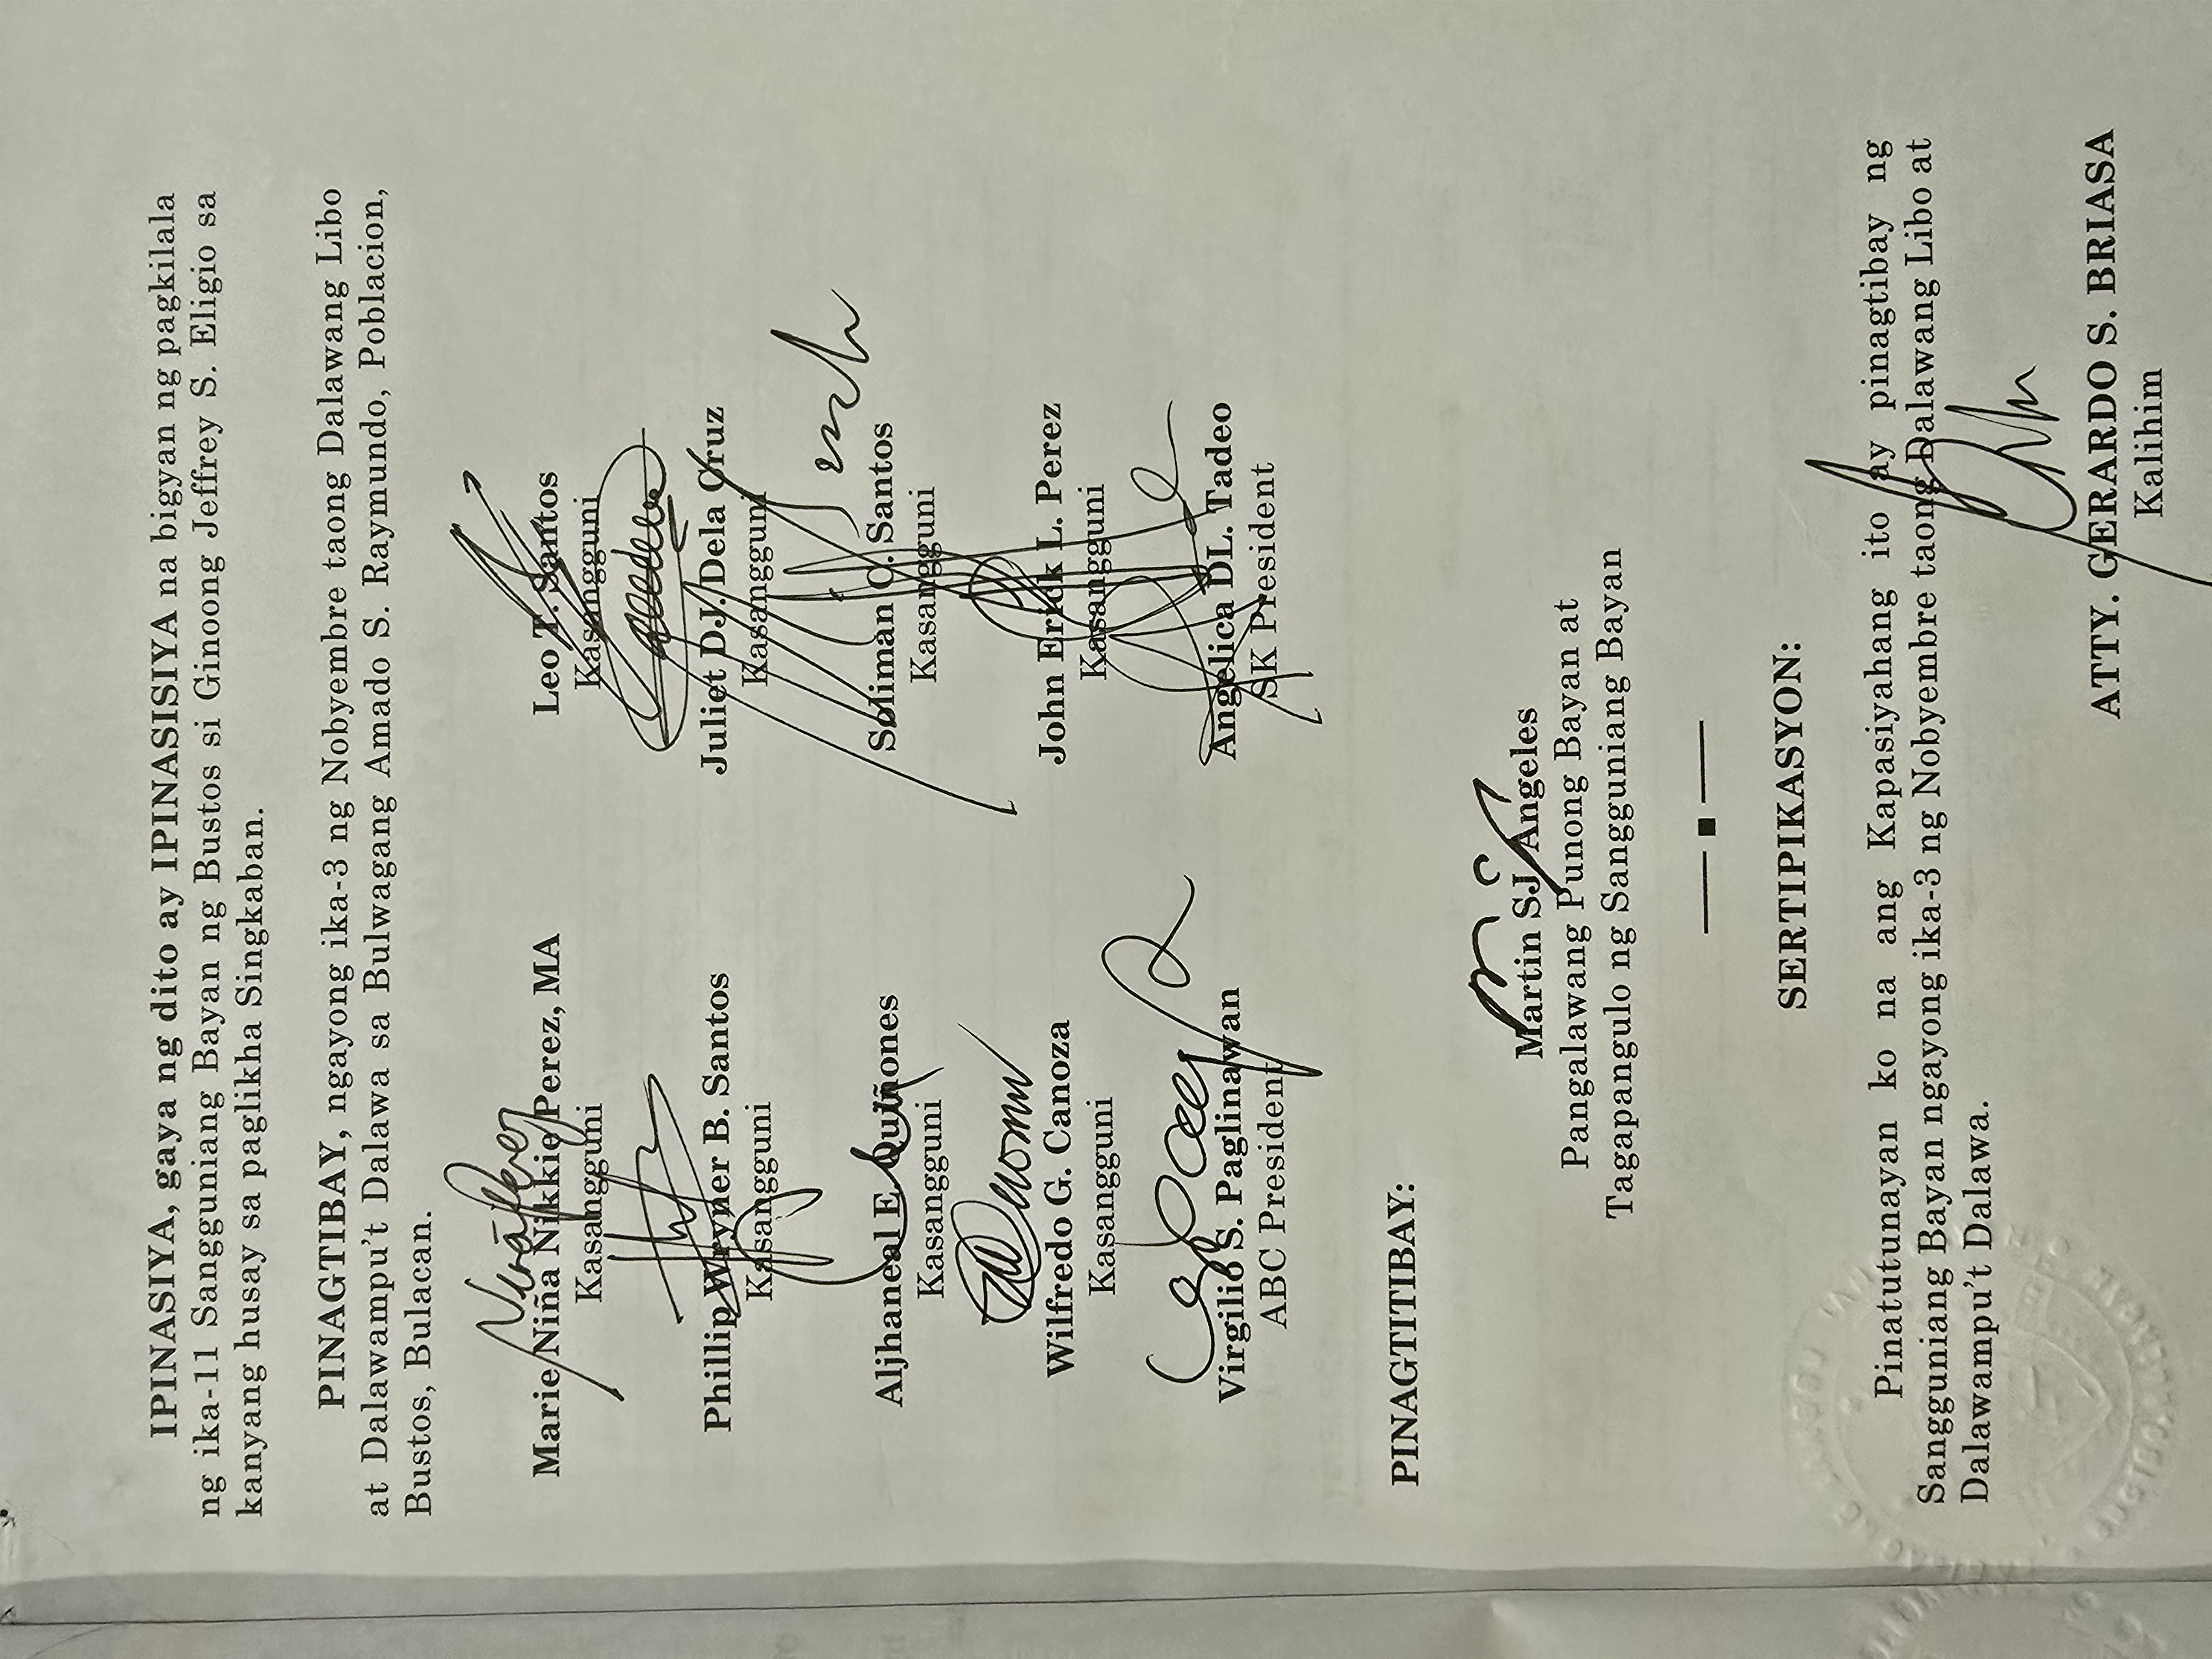 IPINASIYA, gaya ng dito ay IPINASISIYA na bigyan ng pagkilala
ng ika-11 Sangguniang Bayan ng Bustos si Ginoong Jeffrey S. Eligio sa
kanyang husay sa paglikha Singkaban.
PINAGTIBAY, ngayong ika-3 ng Nobyembre taong Dalawang Libo
at Dalawampu't Dalawa sa Bulwagang Amado S. Raymundo, Poblacion,
Bustos, Bulacan.
Marie Niña Nikkie Perez, MA
Kasangguni
Leo T. Santos
Kasangguni
Phillip Wryner B. Santos
Kasangguni
Juliet DJ. Dela Cruz
Kasangguni
Aljhaneal E Quiñones
Kasangguni
Soliman C. Santos
Kasangguni
Wilfredo G. Canoza
Kasangguni
John Erick L. Perez
Kasangguni
Virgilio S. Paglinawan
ABC President
Angelica DL. Tadeo
SK President
PINAGTITIBAY:
Martin SJ Angeles
Pangalawang Punong Bayan at
Tagapangulo ng Sangguniang Bayan
SERTIPIKASYON:
Pinatutunayan ko na ang Kapasiyahang ito ay pinagtibay ng
Sangguniang Bayan ngayong ika-3 ng Nobyembre taong Dalawang Libo at
Dalawampu't Dalawa.
ATTY. GERARDO S. BRIASA
Kalihim